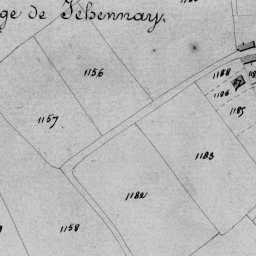 ge de Jébennay.
1156
1188
1186
1185
1157
1183
1182
1158